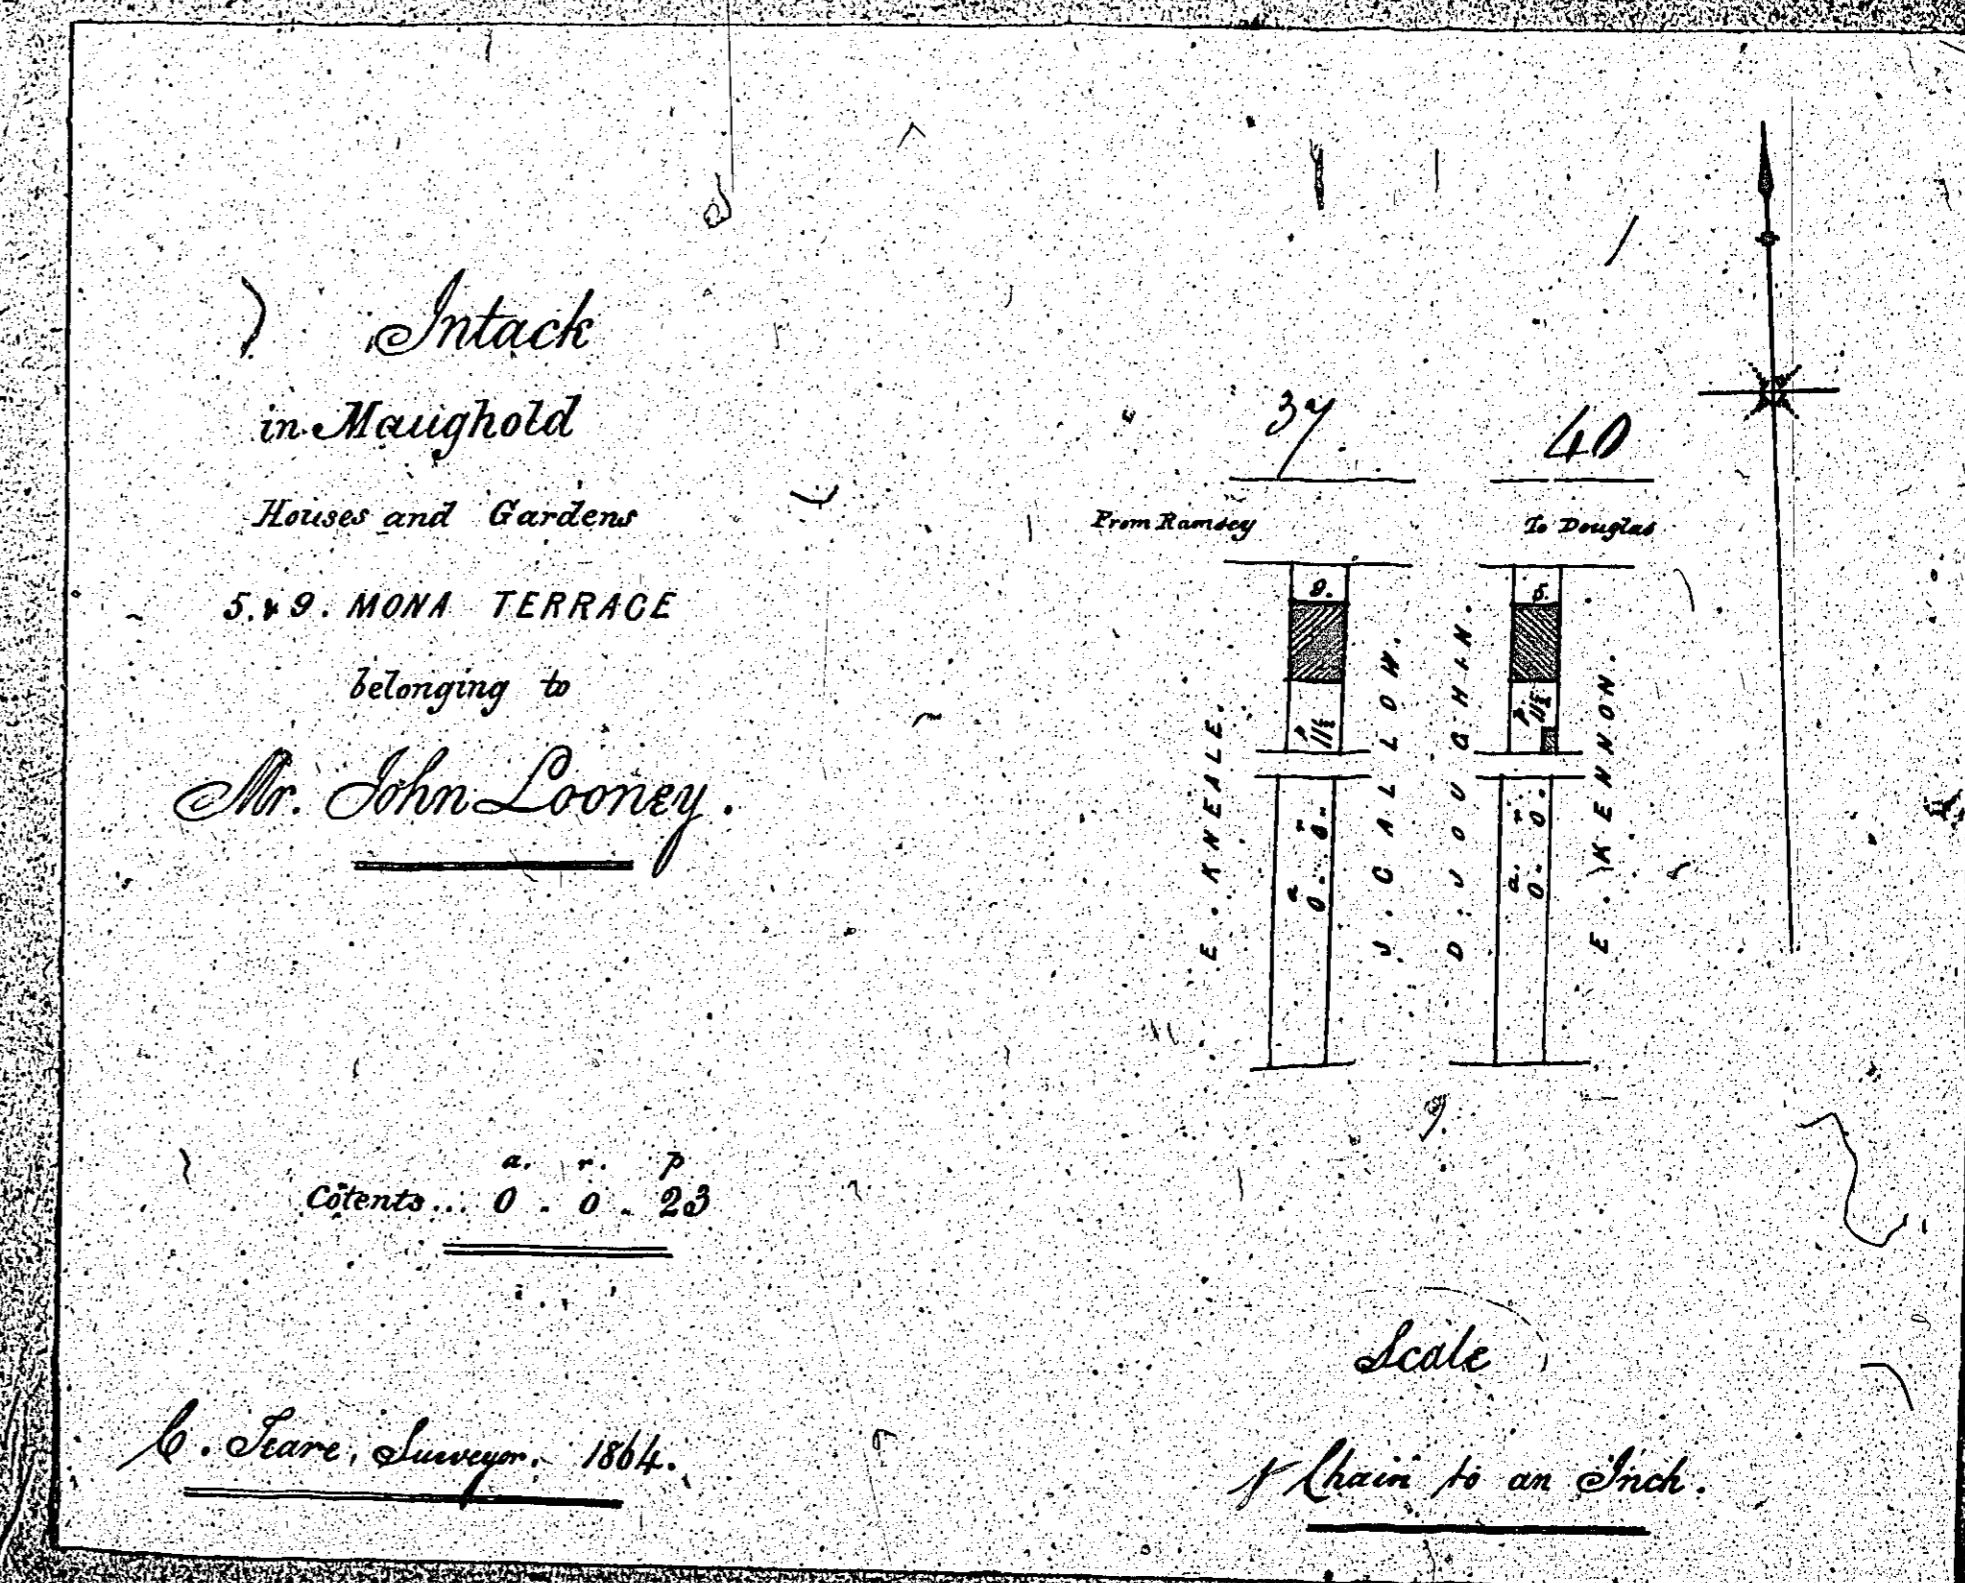 Intack
in Maughold
Houses and Gardens
5. & 9. MONA TERRACE
belonging to
Mr. John Looney.
a. r. p
Cōtents... 0 . 0 . 23
C. Feare, Surveyor. 1864.
37
40
From Ramsey
To Douglas
9.
5.
E. KNEALE.
a r p
0. 0. 11½
J. CALLOW.
D. JOUGHIN.
a. r. p
0. 0. 11½
E. KENNON.
Scale
1 Chain to an Inch.